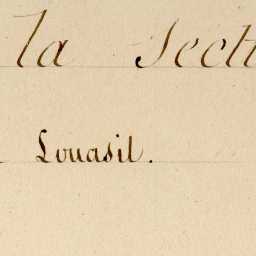 la Secti
Louasil.